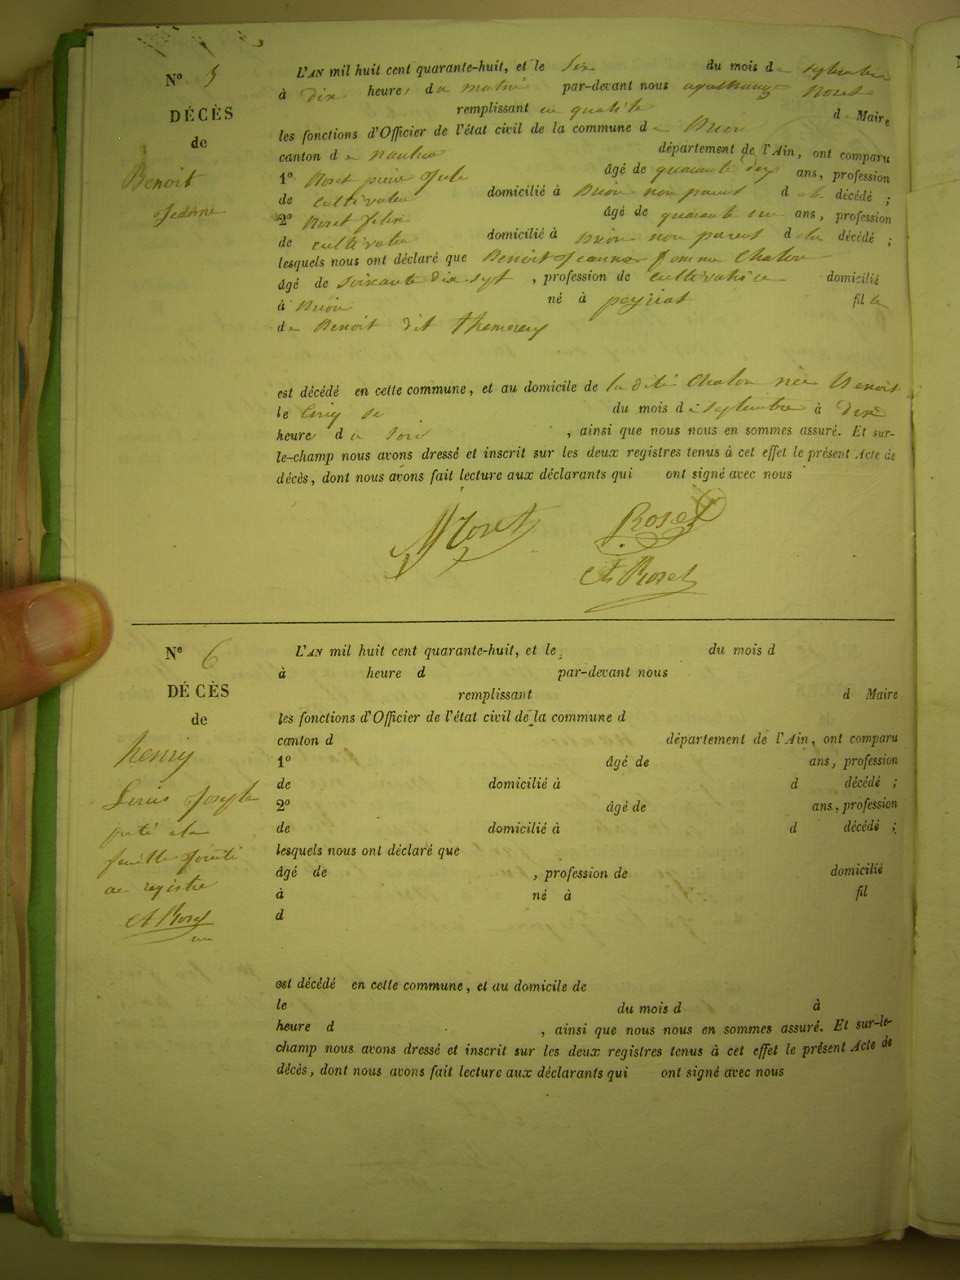 Nº 5
DÉCÈS
de
Benoit
Jeanne
L'AN mil huit cent quarante-huit, et le six du mois de septembre
à dix heures du matin par-devant nous Roset
remplissant en qualité d Maire
les fonctions d'Officier de l'état civil de la commune de Brion
canton de nantua département de l'Ain, ont comparu
1º Roset âgé de quarante ans, profession
de cultivateur domicilié à Brion non parent d la décédé ;
2º Roset félix âgé de quarante ans, profession
de cultivateur domicilié à Brion non parent d la décédé ;
lesquels nous ont déclaré que Benoit Jeanne femme Chalon
âgé de soixante dix sept , profession de cultivatrice domicilié
à Brion né à peyriat fille
de Benoit dit
est décédé en cette commune, et au domicile de la dite Chalon née Benoit
le cinq du mois de septembre à dix
heures du soir , ainsi que nous nous en sommes assuré. Et sur-
le-champ nous avons dressé et inscrit sur les deux registres tenus à cet effet le présent Acte de
décès, dont nous avons fait lecture aux déclarants qui ont signé avec nous
Roset Roset
A Roset
Nº 6
DÉCÈS
de
henry
Louis Joseph
porté à la
feuille jointe
au registre
A Roset
L'AN mil huit cent quarante-huit, et le du mois d
à heure d par-devant nous
remplissant d Maire
les fonctions d'Officier de l'état civil de la commune d
canton d département de l'Ain, ont comparu
1º âgé de ans, profession
de domicilié à d décédé ;
2º âgé de ans, profession
de domicilié à d décédé ;
lesquels nous ont déclaré que
âgé de , profession de domicilié
à né à fil
d
est décédé en cette commune, et au domicile de
le du mois d à
heure d , ainsi que nous nous en sommes assuré. Et sur-le-
champ nous avons dressé et inscrit sur les deux registres tenus à cet effet le présent Acte de
décès, dont nous avons fait lecture aux déclarants qui ont signé avec nous